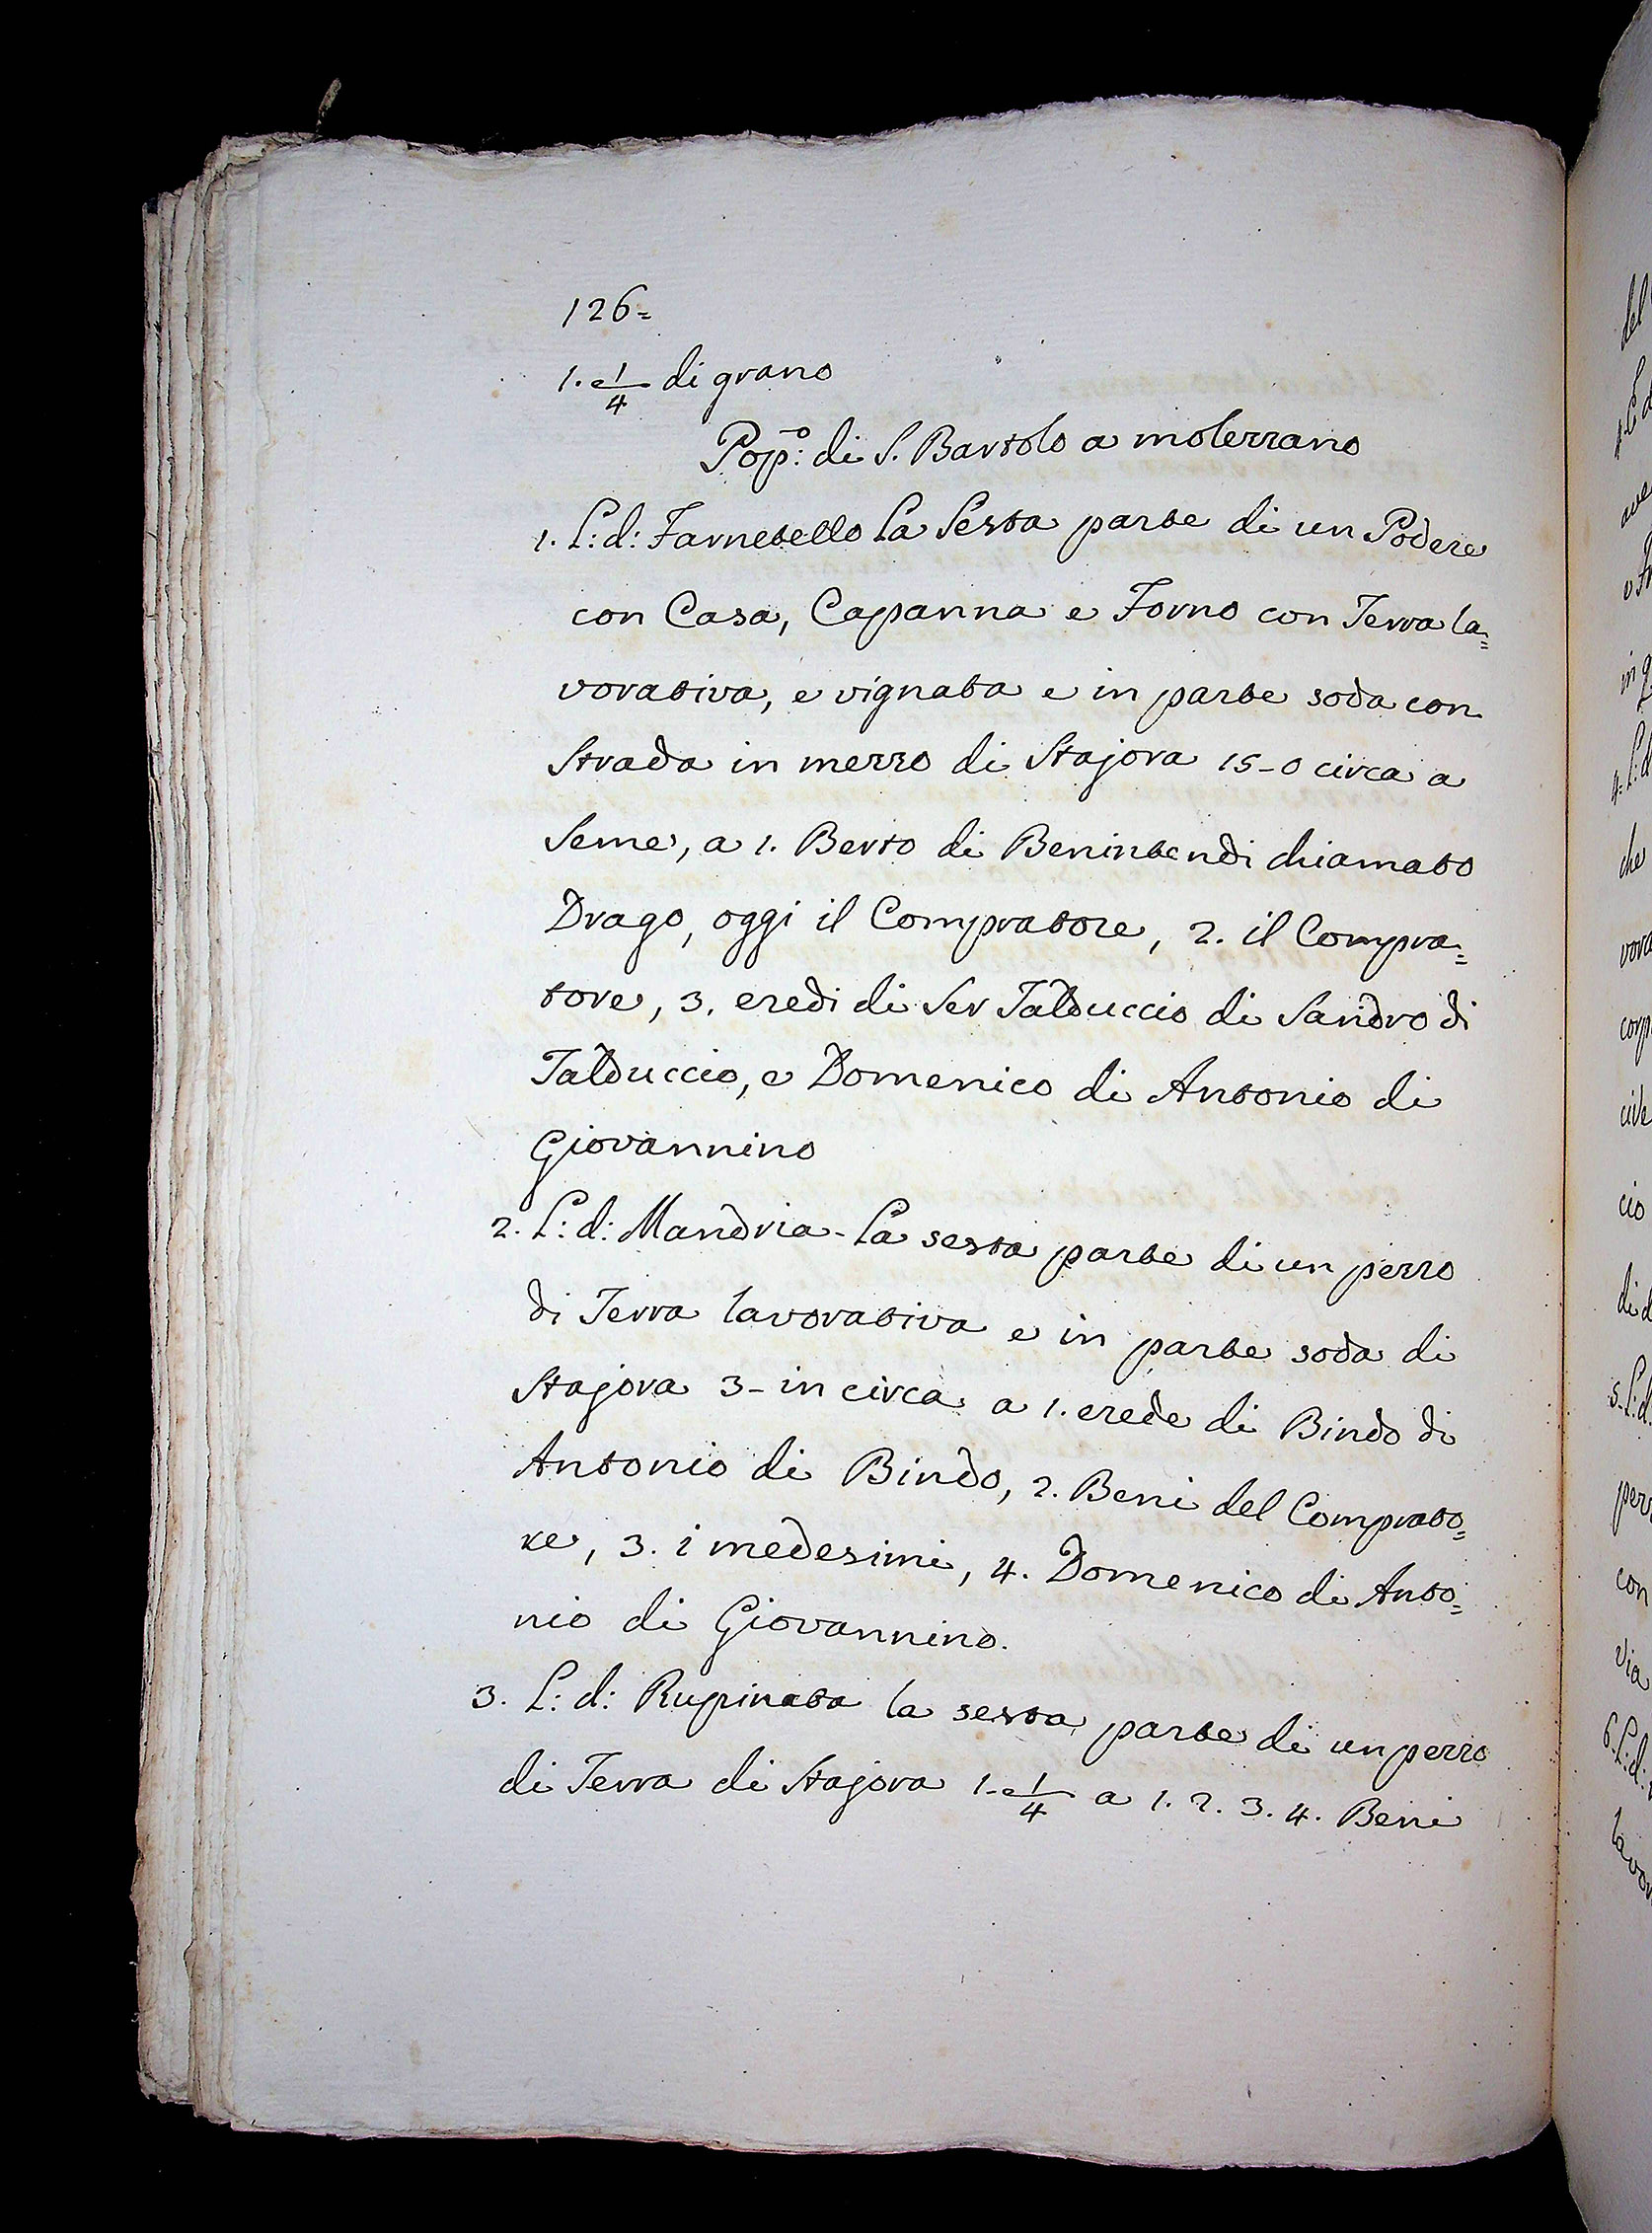 126=
1. e 1/4 di grano
Pop.º: di S. Bartolo a molezzano
1. L: d: Farnetello La Sesta parte di un Podere
con Casa, Capanna e Forno con Terra la=
vorativa, e vignata e in parte soda con
Strada in mezzo di Stajora 15-0 circa a
Seme, a 1. Berto di Benintendi chiamato
Drago, oggi il Compratore, 2. il Compra=
tore, 3. eredi di Ser Talduccio di Sandro di
Talduccio, e Domenico di Antonio di
Giovannino
2. L: d: Mandria - La sesta parte di un pezzo
di Terra lavorativa e in parte soda di
Stajora 3- in circa a 1. erede di Bindo di
Antonio di Bindo, 2. Beni del Comprato=
re, 3. i medesimi, 4. Domenico di Anto=
nio di Giovannino.
3. L: d: Rupinata la sesta parte di un pezzo
di Terra di Stajora 1. e 1/4 a 1. 2. 3. 4. Beni
del
ave
in q
4= L: d
che
vora
corp
cio
di d
5- L: d.
con
Via
6- L: d: